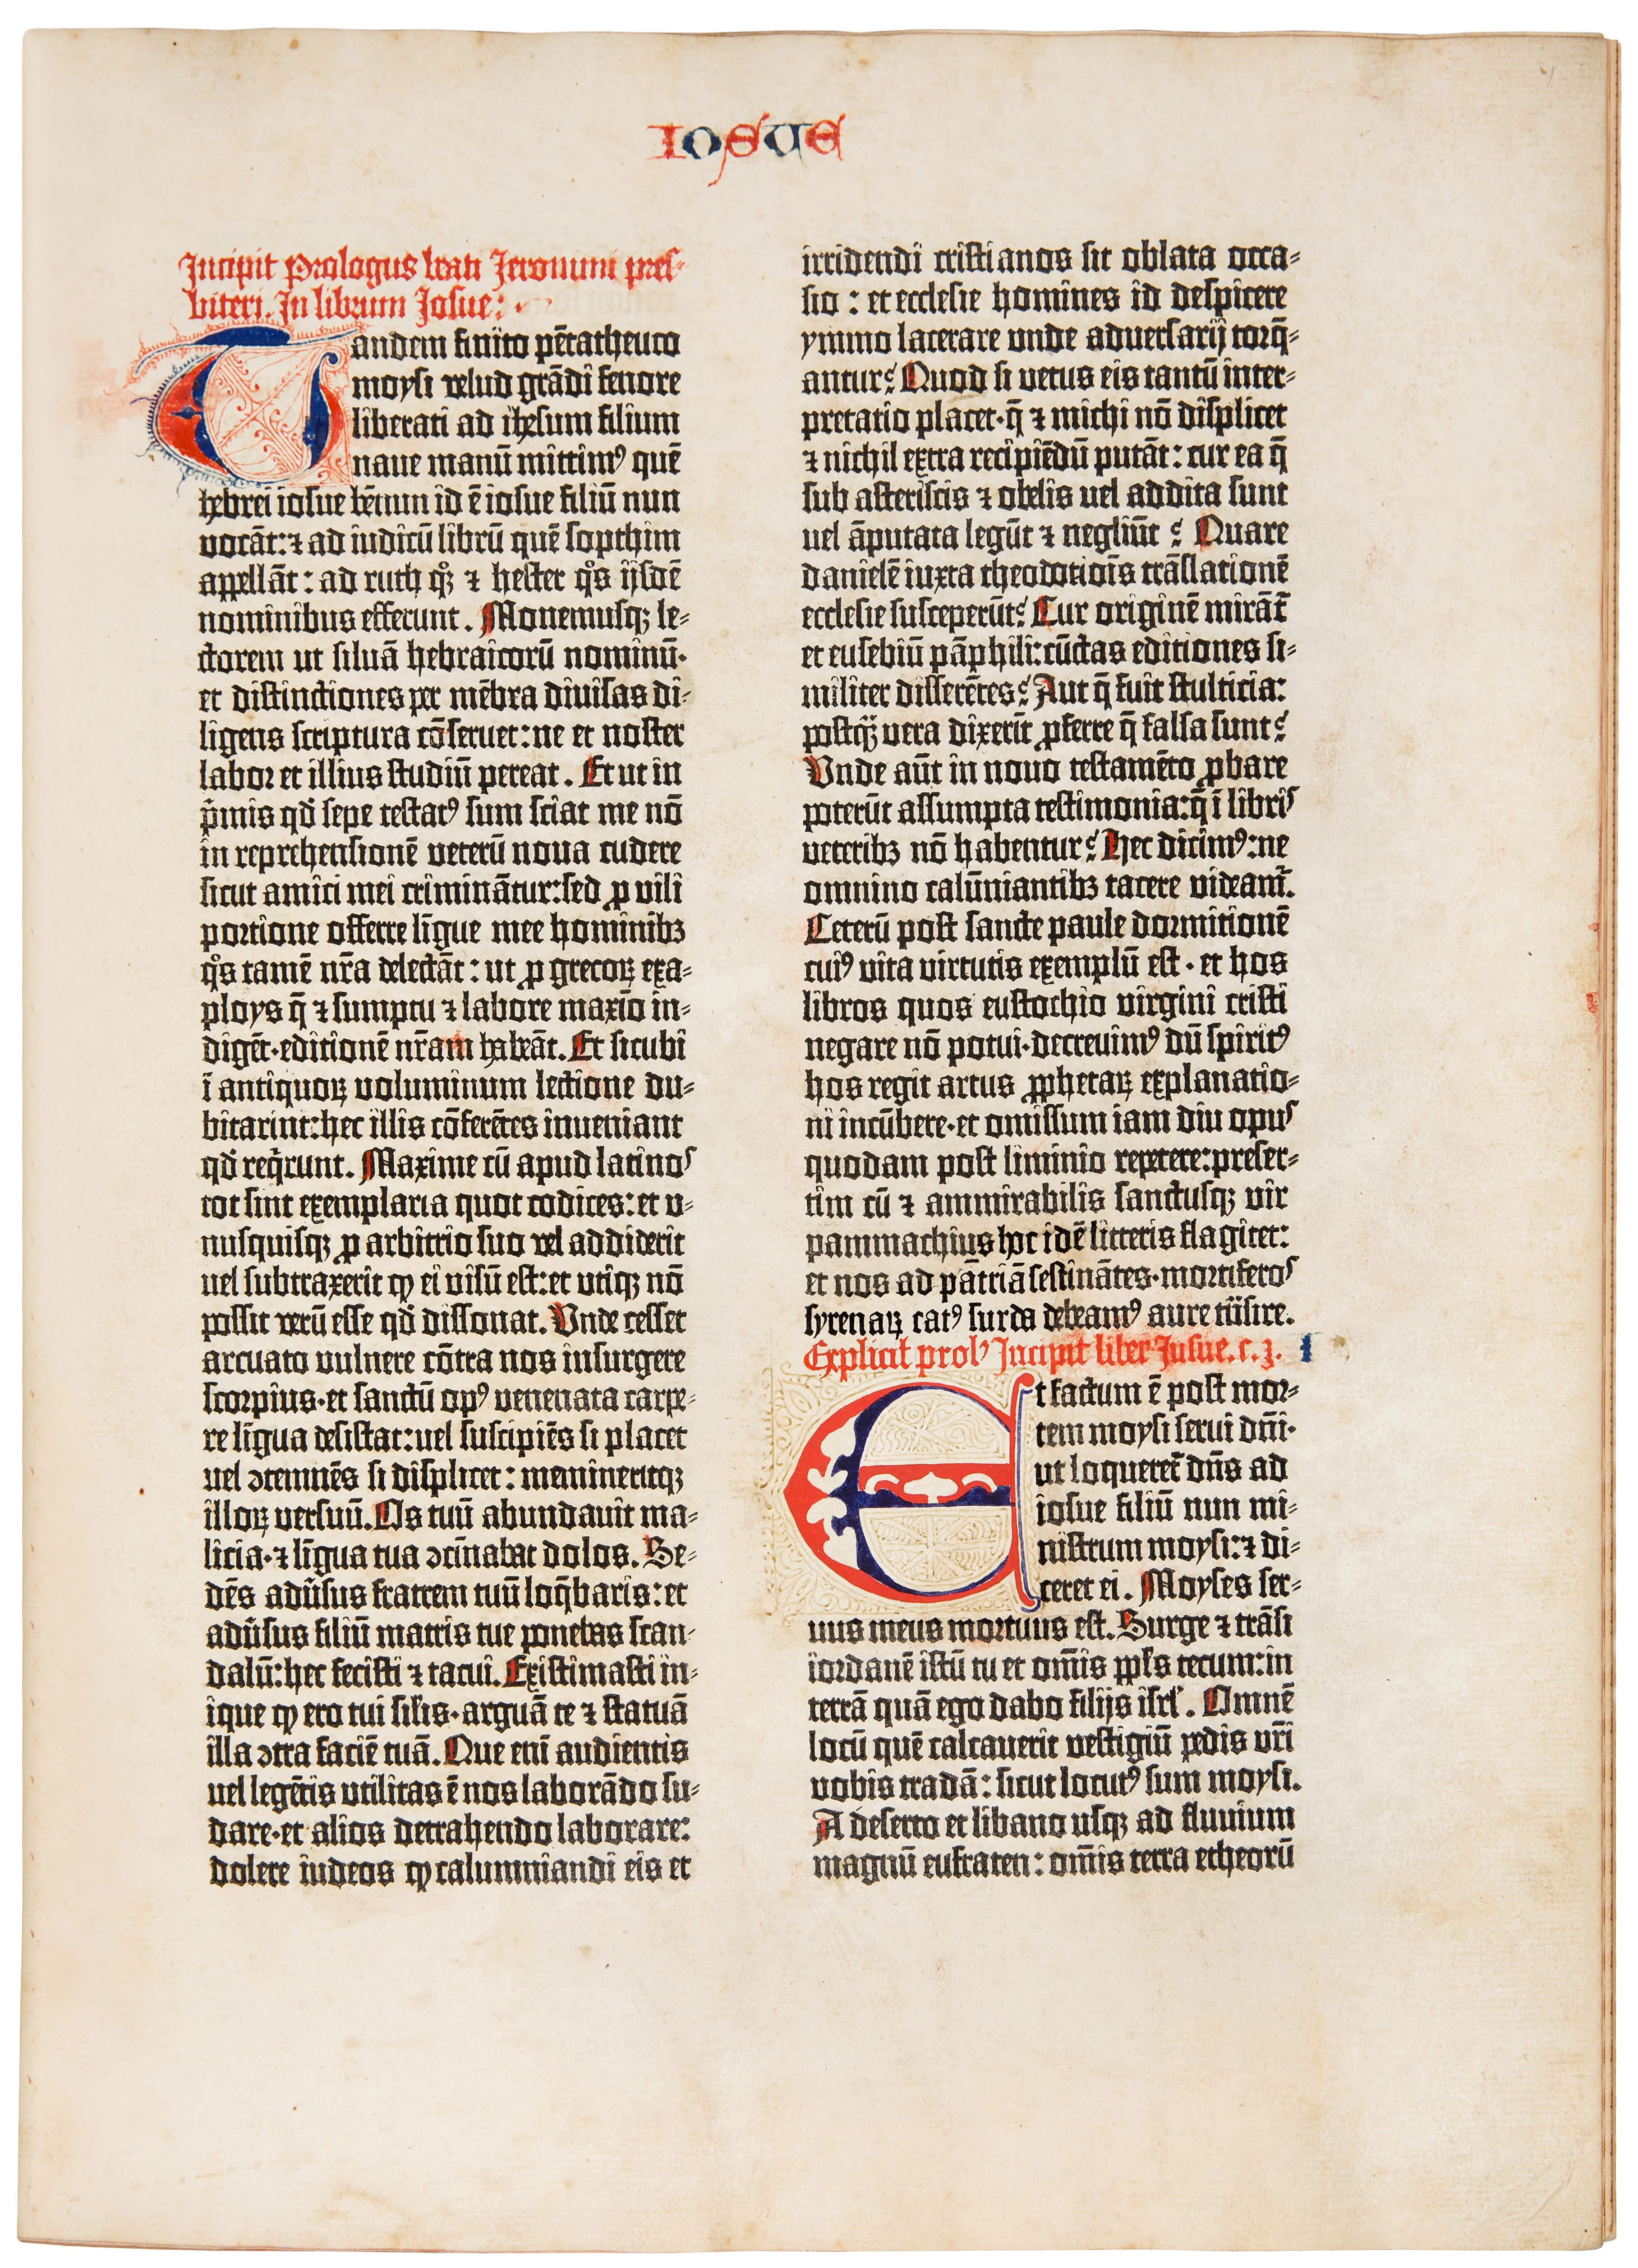 IOSUE
Incipit Prologus beati Jeronimi pres-
biteri. In librum Josue:
Tandem finito pētatheuco
moysi velud grādi fenore
liberati ad ihesum filium
naue manū mittimꝰ quē
hebrei iosue bēnun id ē iosue filiū nun
vocāt: ⁊ ad iudicū librū quē sopthim
appellāt: ad ruth qͦꝫ ⁊ hester qͦs ijsdē
nominibus efferunt. Monemusqꝫ le-
ctorem ut siluā hebraicorū nominū·
et distinctiones per mēbra diuisas di-
ligens scriptura cōseruet: ne et noster
labor et illius studiū pereat. Et ut in
pͥmis qď sepe testatꝰ sum sciat me nō
in reprehensionē veterū noua cudere
sicut amici mei criminātur: sed ꝓ uili
portione offerre līgue mee hominibꝫ
qͦs tamē nr̄a delectāt: ut ꝓ grecoꝝ exa-
ploys q̄ ⁊ sumptu ⁊ labore maxīo in-
digēt·editionē nr̄am habeāt. Et sicubi
ī antiquoꝝ voluminum lectione du-
bitarint: hec illis cōferētes inueniant
qď reqͥrunt. Maxime cū apud latinos
tot sint exemplaria quot codices: et v-
nusquisqꝫ ꝓ arbitrio suo vel addiderit
uel subtraxerit ꝙ ei visū est: et utiqꝫ nō
possit verū esse qď dissonat. Unde cesset
arcuato vulnere cōtra nos insurgere
scorpius·et sanctū opꝰ venenata carpe-
re līgua desistat: uel suscipiēs si placet
uel ↄtemnēs si displicet: memineritqꝫ
illoꝝ versuū. Os tuū abundauit ma-
licia·⁊ līgua tua ↄcīnabat dolos. Se-
dēs adūsus fratrem tuū loq̄baris: et
adūsus filiū matris tue ponebas scan-
dalū: hec fecisti ⁊ tacui. Existimasti in-
ique ꝙ ero tui sil̄is·arguā te ⁊ statuā
illa ↄtra faciē tuā. Que enī audientis
uel legētis utilitas ē nos laborādo su-
dare·et alios detrahendo laborare:
dolere iudeos ꝙ calumniandi eis et
irridendi cristianos sit oblata occa-
sio: et ecclesie homines id despicere
ymmo lacerare unde aduersarij torq̄-
antur? Quod si vetus eis tantū inter-
pretatio placet·q̄ ⁊ michi nō displicet
⁊ nichil extra recipiēdū putāt: cur ea q̄
sub asteriscis ⁊ obelis uel addita sunt
uel āputata legūt ⁊ negliūt? Quare
danielē iuxta theodotiōis trāslationē
ecclesie susceperūt? Cur originē mirāt̄
et eusebiū pāphili: cūctas editiones si-
militer disserētes? Aut q̄ fuit stulticia:
postqᷓꝫ vera dixerīt ꝓferre q̄ falsa sunt?
Unde aūt in nouo testamēto ꝓbare
poterūt assumpta testimonia: q̄ ī libris
veteribꝫ nō habentur? Hec dicimꝰ: ne
omnino calūniantibꝫ tacere videam̄.
Ceterū post sancte paule dormitionē
cuiꝰ vita virtutis exemplū est·et hos
libros quos eustochio virgini cristi
negare nō potui·decreuimꝰ dū spiritꝰ
hos regit artus ꝓphetaꝝ explanatio-
ni incūbere·et omissum iam diu opus
quodam post liminio repetere: preser-
tim cū ⁊ ammirabilis sanctusqꝫ vir
pammachius hoc idē litteris flagitet:
et nos ad pātriā festinātes·mortiferos
syrenaꝝ catꝰ surda debeamꝰ aure trāsire.
Explicit prol’ Incipit liber Iosue. c. ꝫ. I
Et factum ē post mor-
tem moysi serui dn̄i·
ut loqueret̄ dn̄s ad
iosue filiū nun mi-
nistrum moysi: ⁊ di-
ceret ei. Moyses ser-
uus meus mortuus est. Surge ⁊ trāsi
iordanē istū tu et om̄is ppl̄s tecum: in
terrā quā ego dabo filijs isrl̄. Omnē
locū quē calcauerit vestigiū pedis vr̄i
vobis tradā: sicut locutꝰ sum moysi.
A deserto et libano usqꝫ ad fluuium
magnū eufraten: om̄is terra etheorū